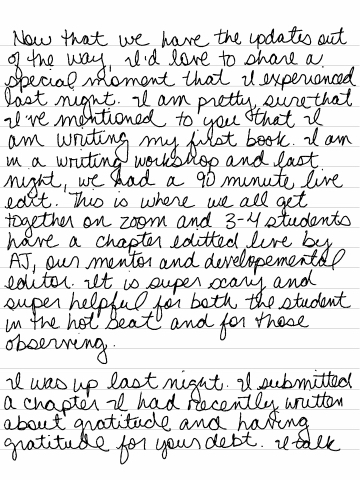 Now that we have the updates out
of the way, I'd love to share a
special moment that I experienced
last night. I am pretty sure that
I've mentioned to you that I
am writing my first book. I am
in a writing workshop and last
night, we had a 90 minute live
edit. This is where we all get
together on zoom and 3-4 students
have a chapter editted live by
AJ, our mentor and developemental
editor. It is super scary and
super helpful for both the student
in the hot seat and for those
observing.
I was up last night. I submitted
a chapter I had recently written
about gratitude and having
gratitude for your debt. I talk